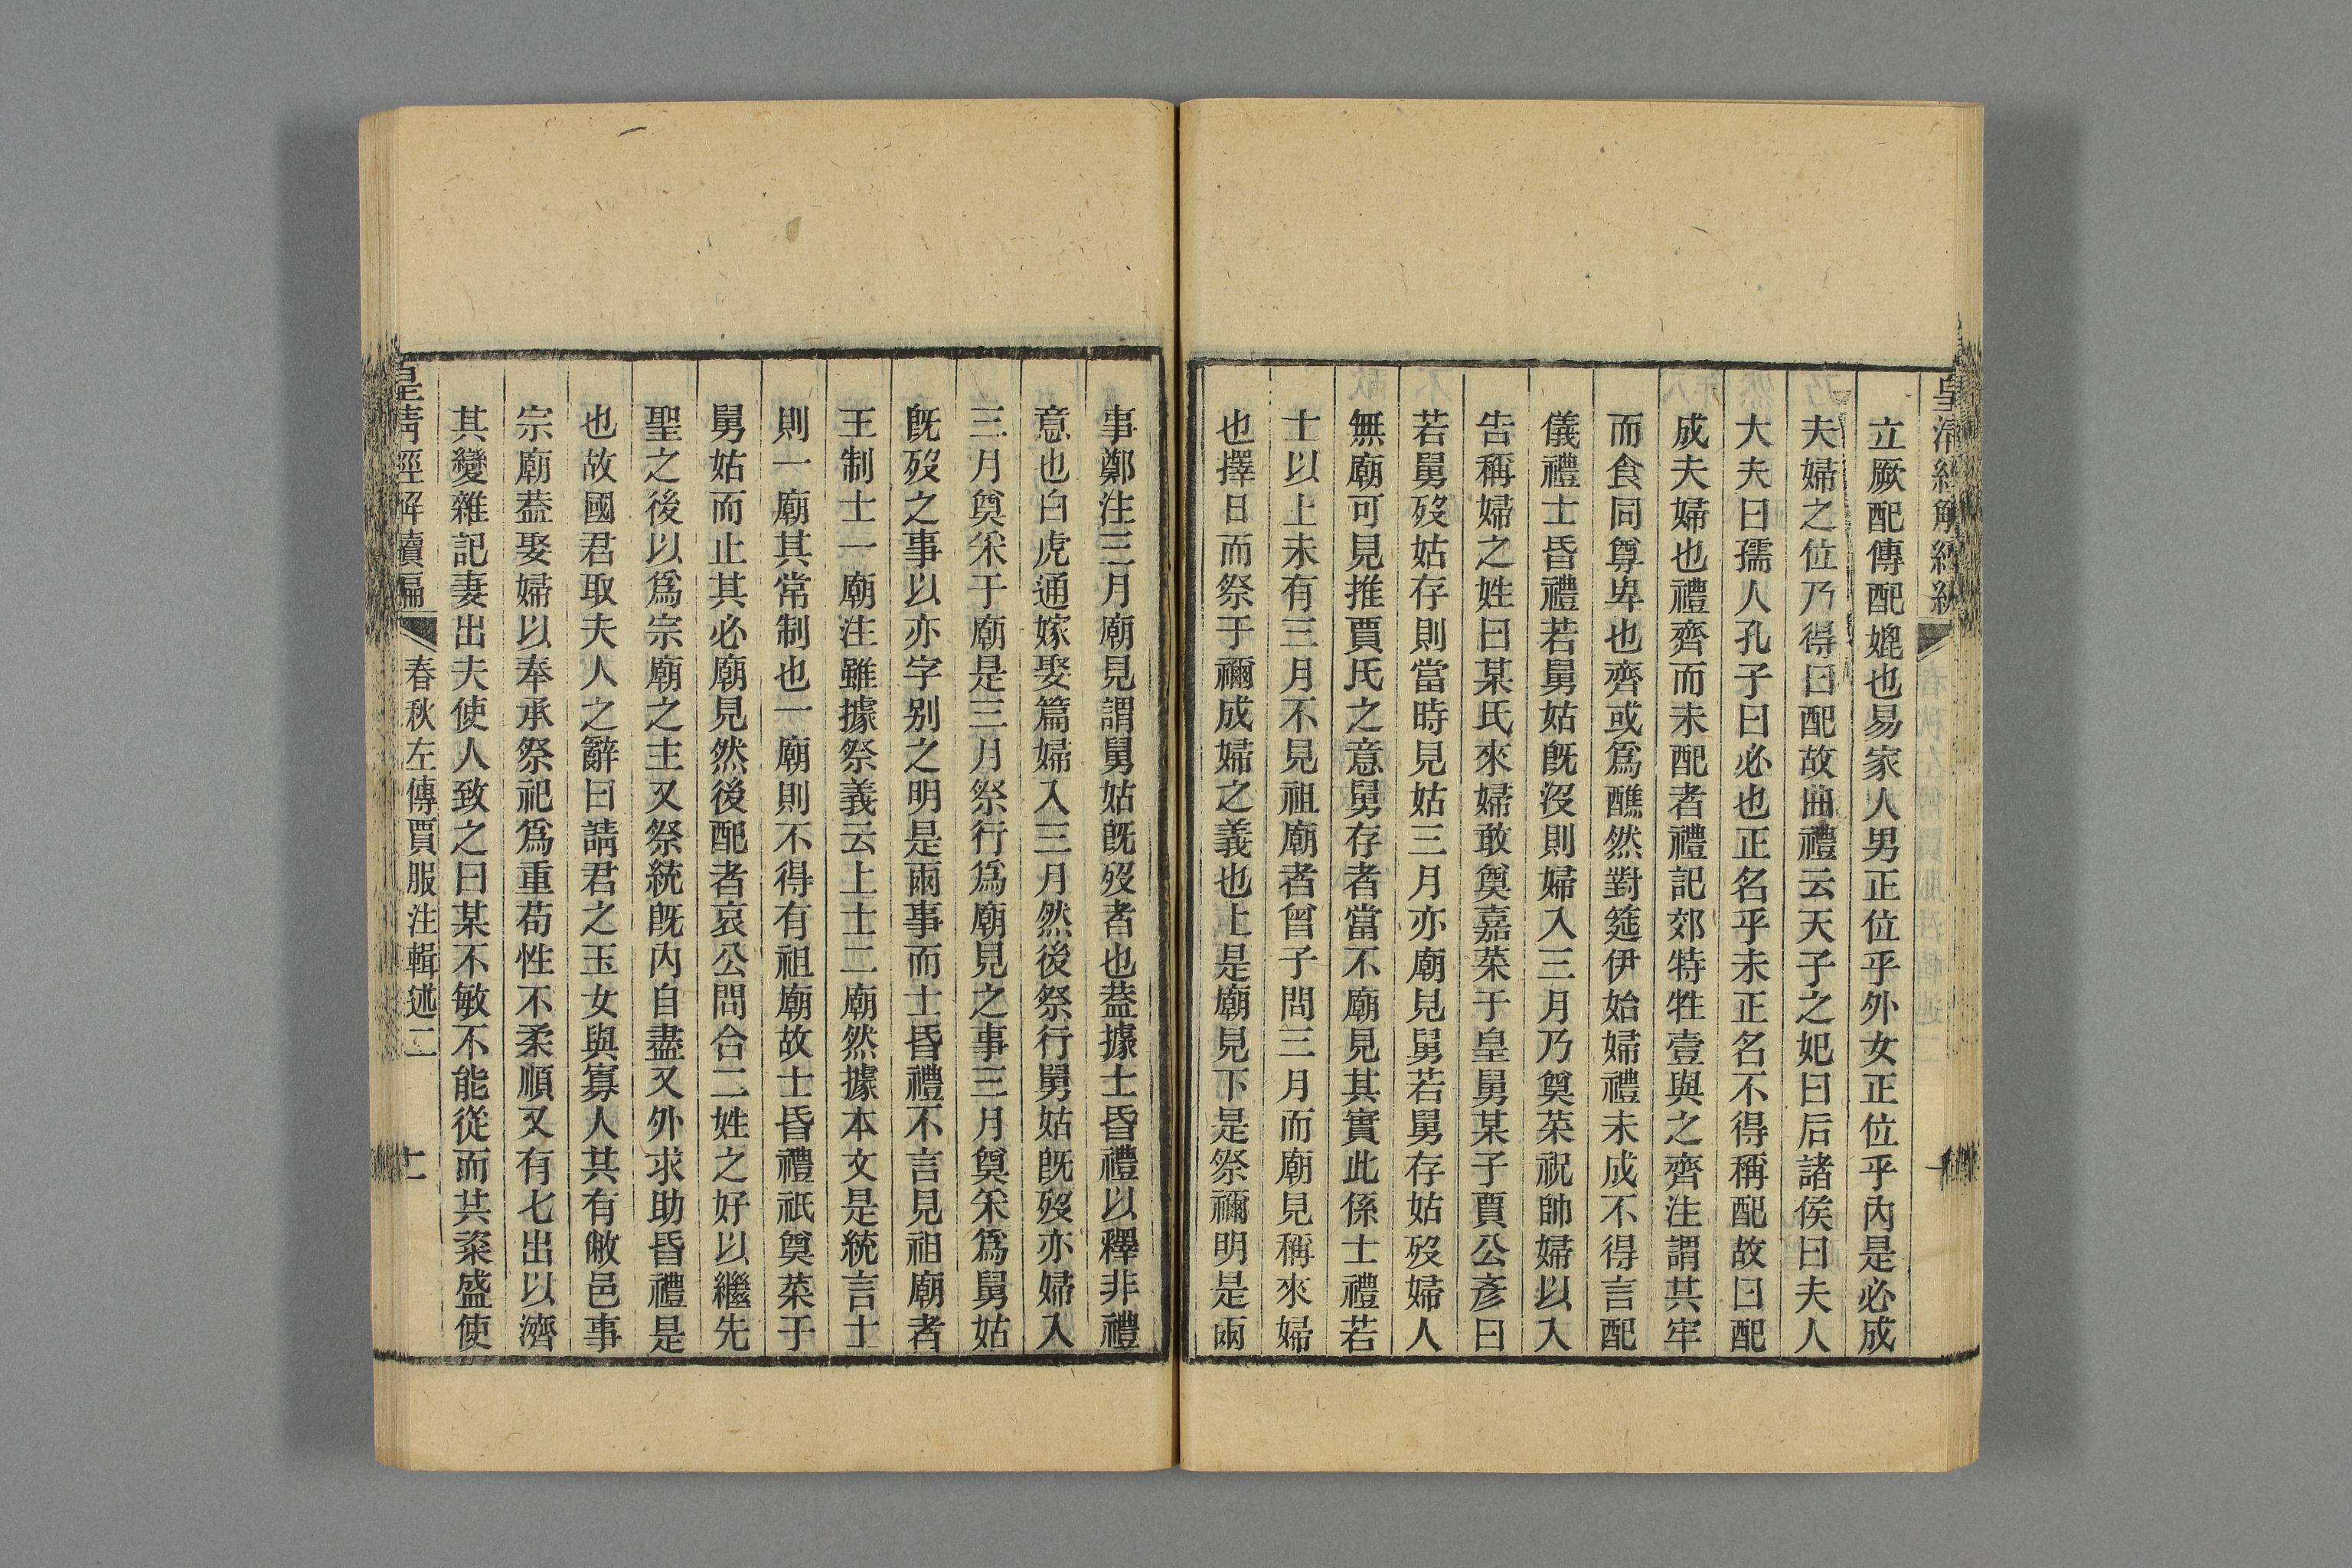 皇清經解續編
立厥配傳配媲也易家人男正位乎外女正位乎內是必成
夫婦之位乃得曰配故曲禮云天子之妃曰后諸侯曰夫人
大夫曰孺人孔子曰必也正名乎未正名不得稱配故曰配
成夫婦也禮齊而未配者禮記郊特牲壹與之齊注謂其牢
而食同尊卑也齊或爲醮然對筵伊始婦禮未成不得言配
儀禮士昏禮若舅姑旣沒則婦入三月乃奠菜祝帥婦以入
告稱婦之姓曰某氏來婦敢奠嘉菜于皇舅某子賈公彥曰
若舅歿姑存則當時見姑三月亦廟見舅若舅存姑歿婦人
無廟可見推賈氏之意舅存者當不廟見其實此係士禮若
士以上未有三月不見祖廟者曾子問三月而廟見稱來婦
也擇日而祭于禰成婦之義也上是廟見下是祭禰明是兩
事鄭注三月廟見謂舅姑旣歿者也葢據士昏禮以釋非禮
意也白虎通嫁娶篇婦入三月然後祭行舅姑旣歿亦婦入
三月奠采于廟是三月祭行爲廟見之事三月奠采爲舅姑
旣歿之事以亦字别之明是兩事而士昏禮不言見祖廟者
王制士一廟注雖據祭義云上士二廟然據本文是統言士
則一廟其常制也一廟則不得有祖廟故士昏禮祇奠菜于
舅姑而止其必廟見然後配者哀公問合二姓之好以繼先
聖之後以爲宗廟之主又祭統旣內自盡又外求助昏禮是
也故國君取夫人之辭曰請君之玉女與寡人共有敝邑事
宗廟葢娶婦以奉承祭祀爲重苟性不柔順又有七出以濟
其變雜記妻出夫使人致之曰某不敏不能從而共粢盛使
皇淸經解續編 春秋左傳賈服注輯述二